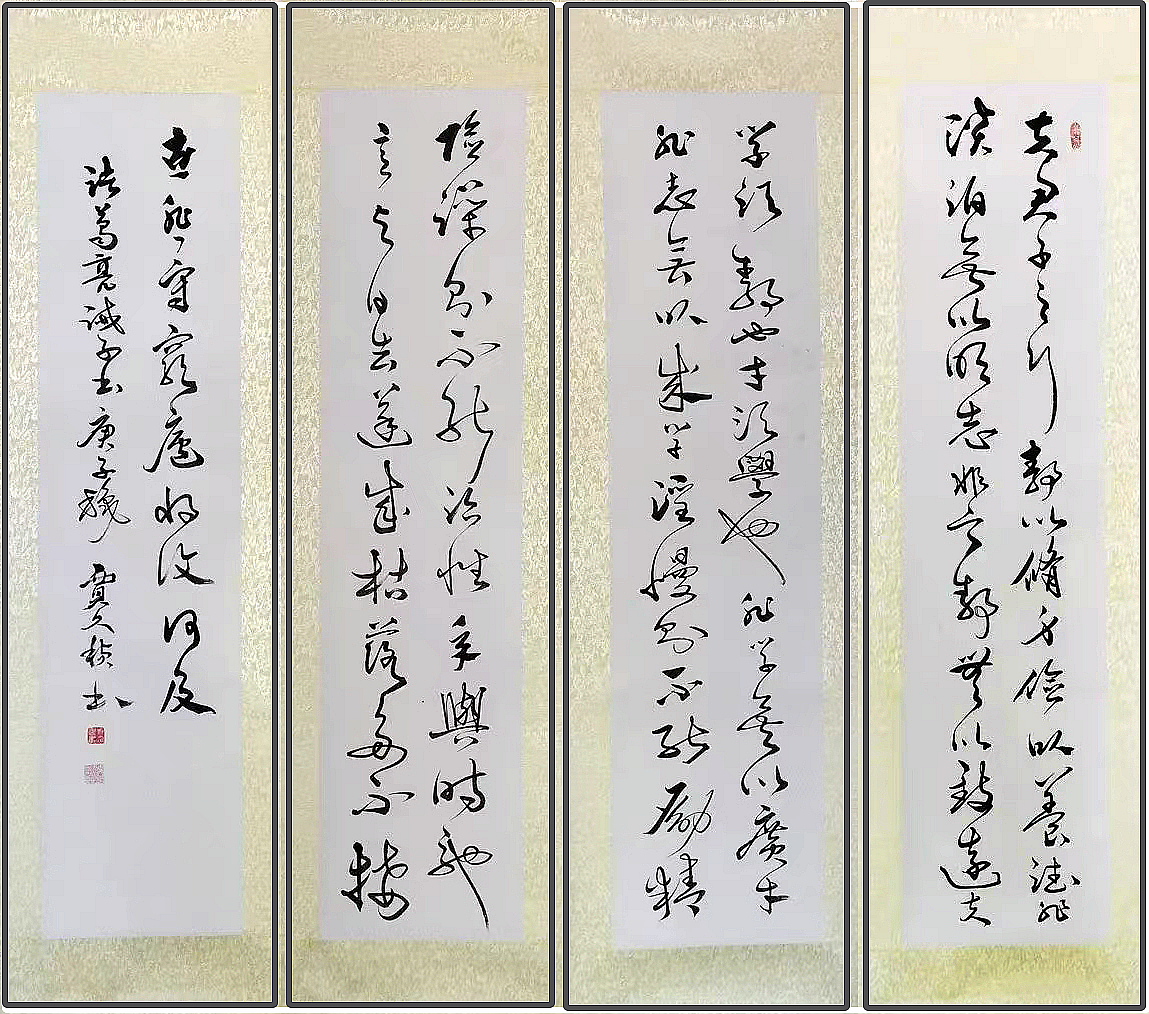 夫君子之行静以脩身俭以养德非
淡泊無以明志非宁静無以致遠夫
学须静也才须學也非学無以廣才
非志無以成学淫慢则不能励精
险躁则不能治性年與時驰
意与日去遂成枯落多不接
世悲守窮廬将復何及
诸葛亮诫子书庚子秋 書